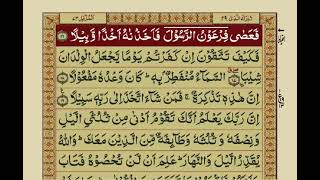 تَبٰرَكَ الَّذِىْ ۲۹ اَلْمُزَّمِّل ۷۳
فَعَصٰى فِرْعَوْنُ الرَّسُوْلَ فَاَخَذْنٰهُ اَخْذًا وَّبِيْلًا ۱۶
فَكَيْفَ تَتَّقُوْنَ اِنْ كَفَرْتُمْ يَوْمًا يَّجْعَلُ الْوِلْدَانَ
شِيْبَا ۱۷ السَّمَآءُ مُنْفَطِرٌۢ بِهٖ كَانَ وَعْدُهٗ مَفْعُوْلًا ۱۸
اِنَّ هٰذِهٖ تَذْكِرَةٌ فَمَنْ شَآءَ اتَّخَذَ اِلٰى رَبِّهٖ سَبِيْلًا ۱۹
اِنَّ رَبَّكَ يَعْلَمُ اَنَّكَ تَقُوْمُ اَدْنٰى مِنْ ثُلُثَىِ الَّيْلِ
وَنِصْفَهٗ وَثُلُثَهٗ وَطَآئِفَةٌ مِّنَ الَّذِيْنَ مَعَكَ وَاللّٰهُ
يُقَدِّرُ الَّيْلَ وَالنَّهَارَ عَلِمَ اَنْ لَّنْ تُحْصُوْهُ فَتَابَ